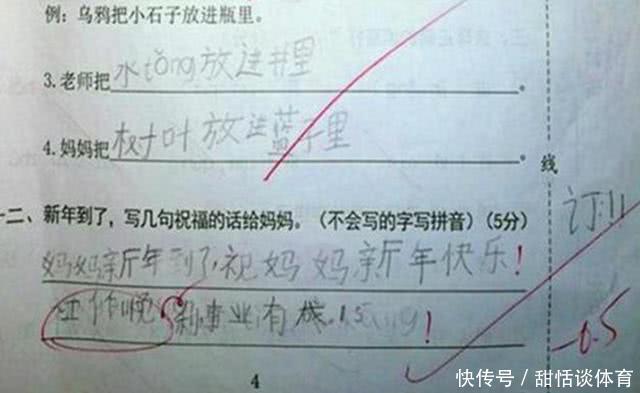 例：乌鸦把小石子放进瓶里。
3.老师把水tǒng放进井里。
4.妈妈把树叶放进蓝子里。
线
十二、新年到了，写几句祝福的话给妈妈。（不会写的字写拼音）（5分）
订
妈妈新年到了,祝妈妈新年快乐！
工作悦 事业有成！
-0.5
4
快传号／甜恬谈体育